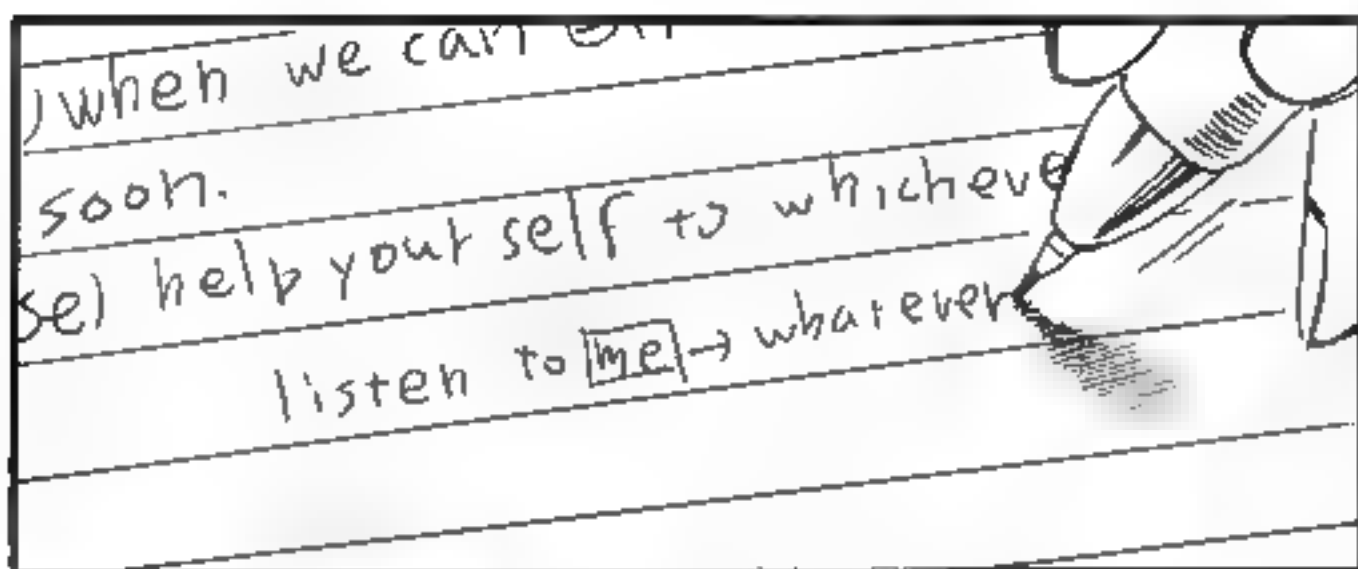 ) when we can
soon.
se) help your self to whicheve
listen to me → whatever